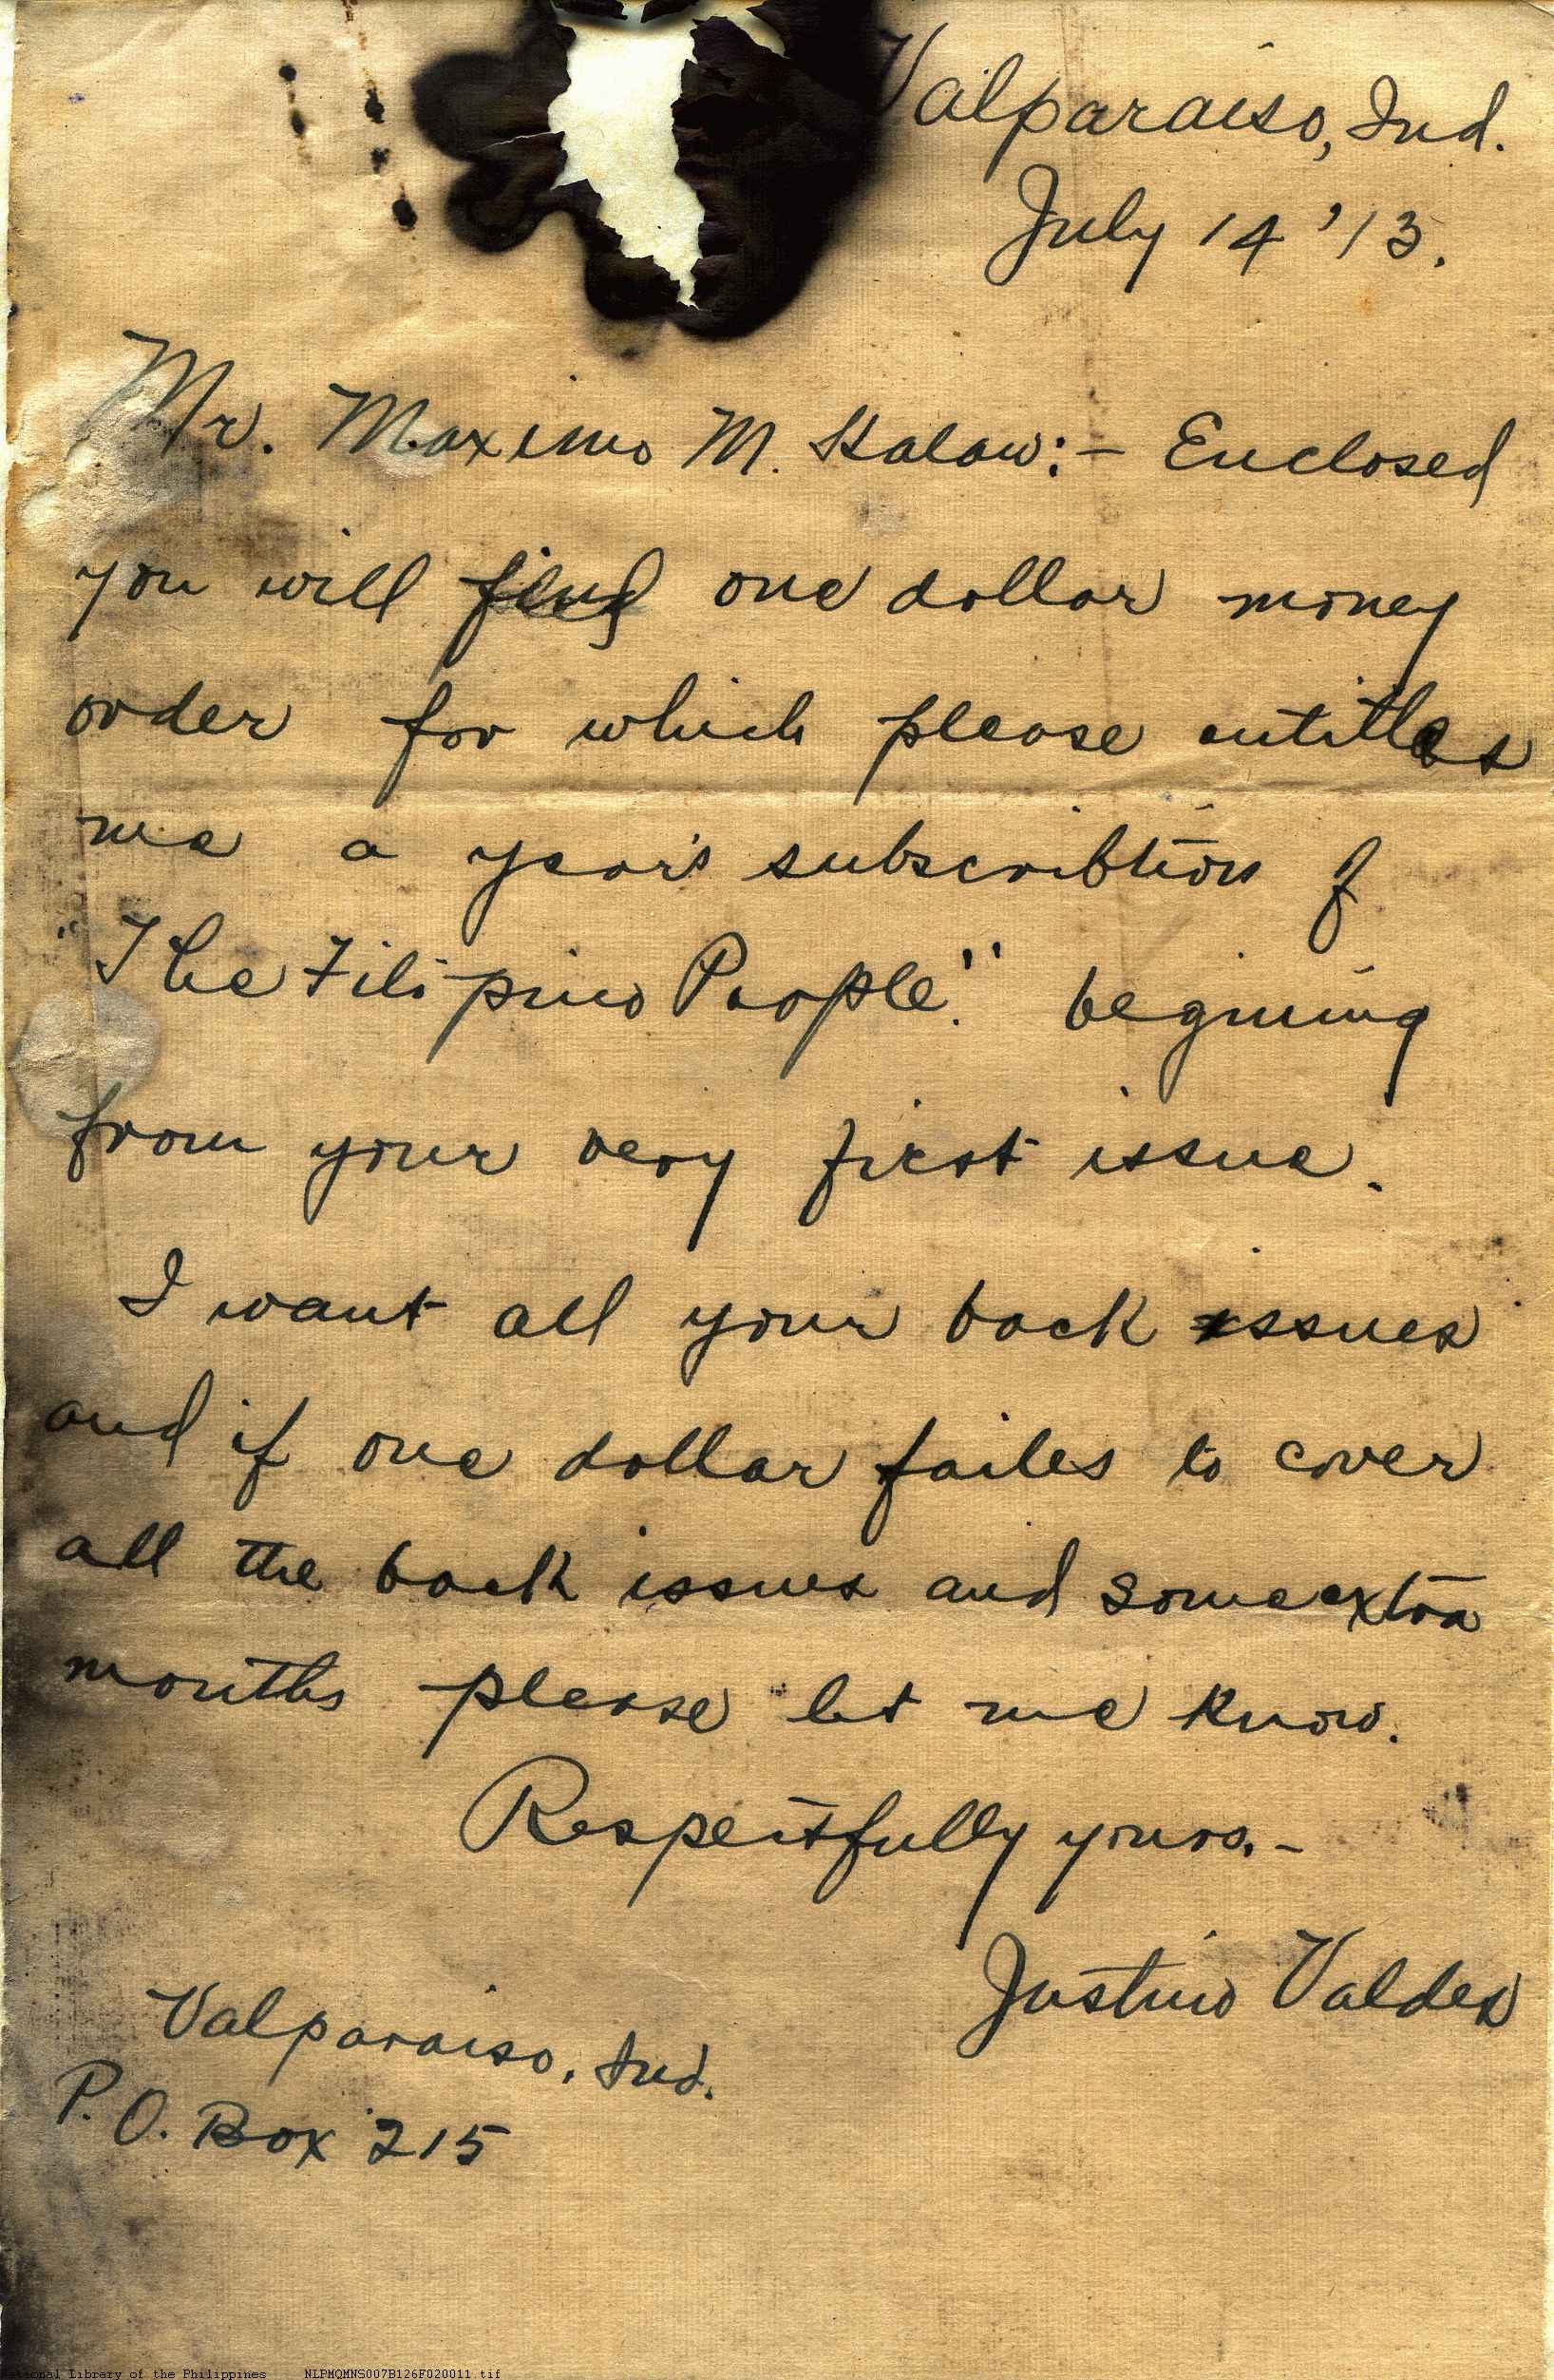 Valparaiso, Ind.
July 14 '13.
Mr. Maximo M. Kalaw:- Enclosed
you will find one dollar money
order for which please entitles
me a year's subscribtion of
"The Filipino People." begining
from your very first issue.
I want all your back issues
and if one dollar failes to cover
all the back issues and some extra
months please let me know.
Respectfully yours.-
Justino Valdes
Valparaiso, Ind.
P.O. Box 215
National Library of the Philippines NLPMQMNS007B126F020011.tif